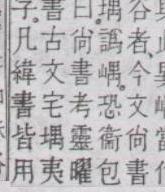 谷者今文尚書
堣譌嵎恐衞包
曰尚書考靈曜
書古文宅堣夷
子凡緯書皆用